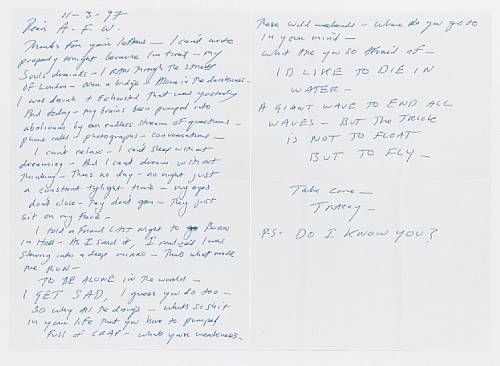 11-3-97
Dear A. F. W.
Thanks for your letters — I can't write
properly tonight because Im tired — my
Souls divaide — I RAN Through The streets
OF London — over a bridge — Alone in The darkness —
I was drunk & Exhausted That was yesterday
And today — my brains been pumped into
abolicuum by an endless stream of questions —
phone calls — photographs — conversations —
I cant relax — I can't sleep without
dreaming — And I cant dream without
Thinking — Theres no day — no night just
a constant tylight time — my eyes
don't close — They don't open — They just
sit on my face —
I told a Friend LAST Night to go BURN
in Hell — As I said it, I realized I was
staring into a deep mirror — Thats what made
me RUN —
TO BE ALONE in the world —
I GET SAD, I guess you do too —
SO why All The drugs — whats so shit
in your life That you have to pumped
Full of CRAP — whats your weakeness —
These wild weekends — where do you go to
in your mind —
What are you so Afraid of —
I'D LIKE TO DIE IN
WATER —
A GIANT WAVE TO END ALL
WAVES — BUT The TRICK
IS NOT TO FLOAT
BUT TO FLY —
Take care —
TRACEY —
P.S: DO I KNOW YOU?